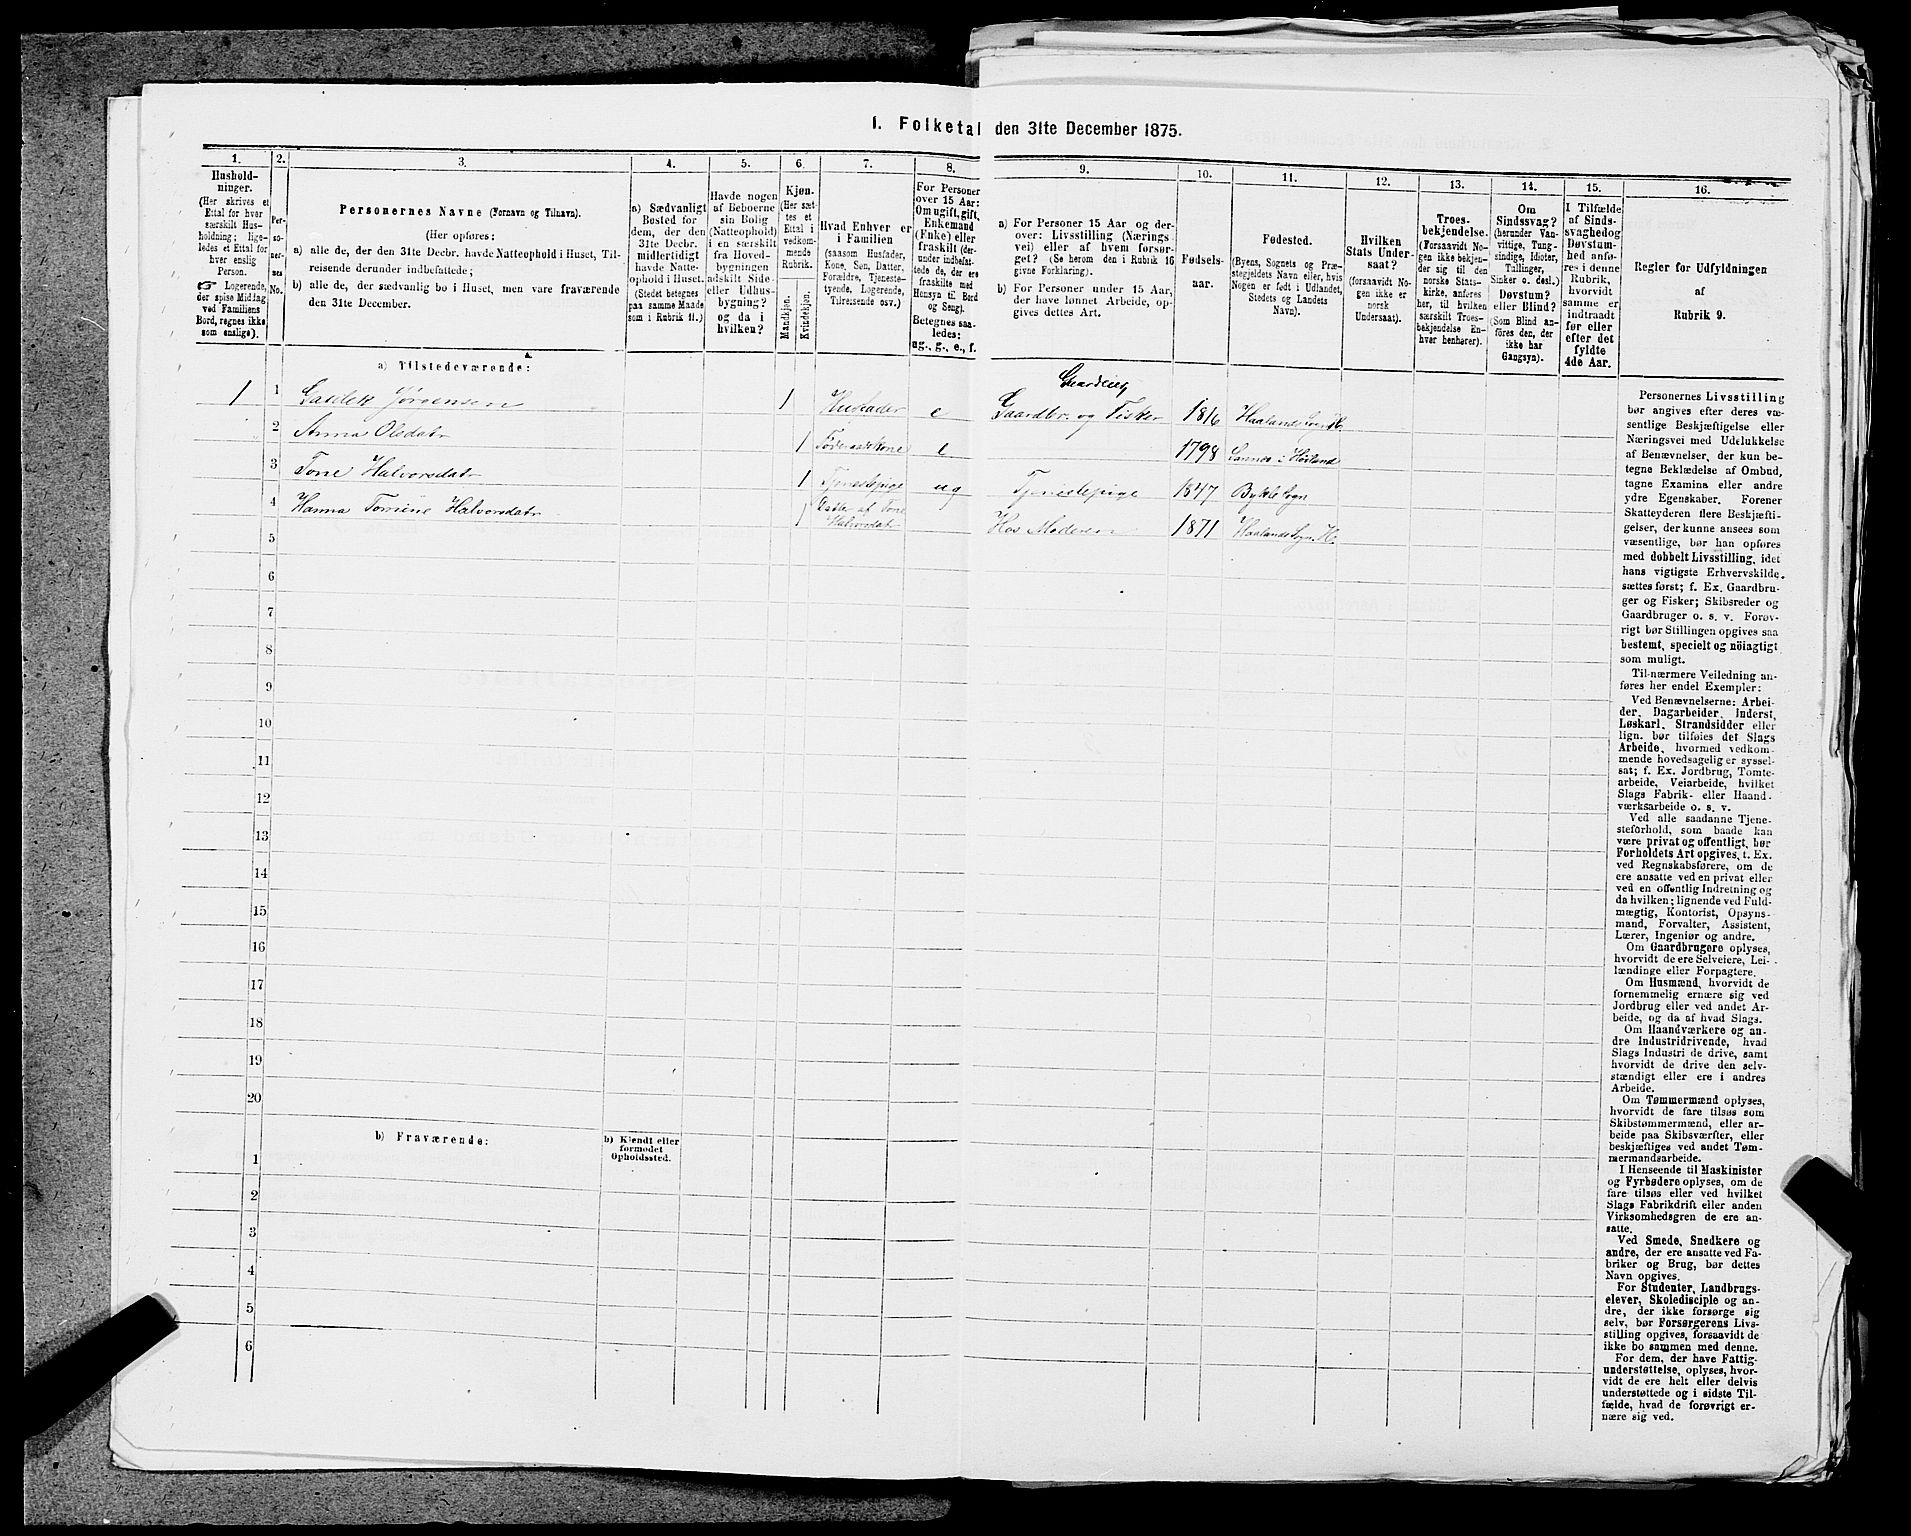 1. Folketal den 31te December 1875.
1.
2.
3.
4.
5.
6.
7.
8.
9.
10.
11.
12.
13.
14.
15.
16.
Hushold-
ninger.
(Her skrives et
Ettal for hver
særskilt Hus-
holdning; lige-
ledes et Ettal for
hver enslig
Person.
☞ Logerende,
der spise Middag
ved Familiens
Bord, regnes ikke
som enslige).
Per-
so-
ner-
nes
No.
Personernes Navne (Fornavn og Tilnavn).
(Her opføres:
a) alle de, der den 31te Decbr. havde Natteophold i Huset, Til-
reisende derunder indbefattede;
b) alle de, der sædvanlig bo i Huset, men vare fraværende
den 31te December.
a) Sædvanligt
Bosted for
dem, der den
31te Decbr.
midlertidigt
havde Natte-
ophold i Huset.
(Stedet betegnes
paa samme Maade
som i Rubrik 11.)
Havde nogen
af Beboerne
sin Bolig
(Natteophold)
i en særskilt
fra Hoved-
bygningen
adskilt Side-
eller Udhus-
bygning?
og da i
hvilken?
Kjøn.
(Her sæt-
tes et
Ettal i
vedkom-
mende
Rubrik.
Mandkjøn.
Kvindekjøn.
Hvad Enhver er
i Familien
(saasom Husfader,
Kone, Søn, Datter,
Forældre, Tjeneste-
tyende, Logerende,
Tilreisende osv.)
For Personer
over 15 Aar:
Om ugift, gift,
Enkemand
(Enke) eller
fraskilt (der-
under indbefat-
tede de, der ere
fraskilte med
Hensyn til Bord
og Seng).
Betegnes saa-
ledes:
ug., g., e., f.
a) For Personer 15 Aar og der-
over: Livsstilling (Nærings-
vei) eller af hvem forsør-
get? (Se herom den i Rubrik 16
givne Forklaring).
b) For Personer under 15 Aar,
der have lønnet Arbeide, op-
gives dettes Art.
Fødsels-
aar.
Fødested.
(Byens, Sognets og Præ-
stegjeldets Navn eller, hvis
Nogen er født i Udlandet,
Stedets og Landets
Navn).
Hvilken
Stats Under-
saat?
(forsaavidt No-
gen ikke er
norsk
Undersaat).
Troes-
bekjendelse.
(Forsaavidt No-
gen ikke bekjen-
der sig til den
norske Stats-
kirke, anføres
her, til hvilken
særskilt Troes-
bekjendelse En-
hver henhører).
Om
Sindssvag?
(herunder Van-
vittige, Tung-
sindige, Idioter,
Tullinger,
Sinker o. desl.)
Døvstum?
eller Blind?
(Som Blind an-
føres den, der
ikke har
Gangsyn).
I Tilfælde
af Sinds-
svaghed og
Døvstum-
hed anfø-
res i denne
Rubrik,
hvorvidt
samme er
indtraadt
før eller
efter det
fyldte
4de Aar.
Regler for Udfyldningen
af
Rubrik 9.
a) Tilstedeværende:
Gaardeier
1 1 Gaulek Jørgensen 1 Husfader e Gaardbr. og Fisker 1816 Haalands Sogn H.
2 Anna Olsdatr 1 Føderaadskone e 1798 Sannes i Høiland
3 Tone Halvorsdatr 1 Tjenestepige ug Tjenestepige 1847 Bykle Sogn
4 Hanna Tomine Halvorsdatr 1 Datter af Tone
Halvorsdatr Hos Moderen 1871 Haalands Sogn. H.
5
6
7
8
9
10
11
12
13
14
15
16
17
18
19
20
b) Fraværende:
b) Kjendt eller
formodet
Opholdssted.
1
2
3
4
5
6
Personernes Livsstilling
bør angives efter deres væ-
sentlige Beskjæftigelse eller
Næringsvei med Udelukkelse
af Benævnelser, der kun be-
tegne Beklædelse af Ombud,
tagne Examina eller andre
ydre Egenskaber. Forener
Skatteyderen flere Beskjæfti-
gelser, der kunne ansees som
væsentlige, bør han opføres
med dobbelt Livsstilling, idet
hans vigtigste Erhvervskilde
sættes først; f. Ex. Gaardbru-
ger og Fisker; Skibsreder og
Gaardbruger o. s. v. Forøv-
rigt bør Stillingen opgives saa
bestemt, specielt og nöiagtigt
som muligt.
Til nærmere Veiledning an-
føres her endel Exempler:
Ved Benævnelserne: Arbei-
der, Dagarbeider, Inderst,
Løskarl, Strandsidder eller
lign. bør tilføies det Slags
Arbeide, hvormed vedkom-
mende hovedsagelig er syssel-
sat; f. Ex. Jordbrug, Tomte-
arbeide, Veiarbeide, hvilket
Slags Fabrik- eller Haand-
værksarbeide o. s. v.
Ved alle saadanne Tjene-
steforhold, som baade kan
være privat og offentligt, bør
Forholdets Art opgives, t. Ex.
ved Regnskabsførere, om de
ere ansatte ved en privat eller
ved en offentlig Indretning og
da hvilken; lignende ved Fuld-
mægtig, Kontorist, Opsyns-
mand, Forvalter, Assistent,
Lærer, Ingeniør og andre.
Om Gaardbrugere oplyses,
hvorvidt de ere Selveiere, Lei-
lændinge eller Forpagtere.
Om Husmænd, hvorvidt de
fornemmelig ernære sig ved
Jordbrug eller ved andet Ar-
beide, og da af hvad Slags.
Om Haandværkere og an-
dre Industridrivende, hvad
Slags Industri de drive, samt
hvorvidt de drive den selv-
stændigt eller ere i andres
Arbeide.
Om Tømmermænd oplyses,
hvorvidt de fare tilsøs som
Skibstømmermænd, eller ar-
beide paa Skibsværfter, eller
beskjæftiges ved andet Tøm-
mermandsarbeide.
I Henseende til Maskinister
og Fyrbødere oplyses, om de
fare tilsøs eller ved hvilket
Slags Fabrikdrift eller anden
Virksomhedsgren de ere an-
satte.
Ved Smede, Snedkere og
andre, der ere ansatte ved Fa-
briker og Brug, bør dettes
Navn opgives.
For Studenter, Landbrugs-
elever, Skoledisciple og an-
dre, der ikke forsørge sig
selv, bør Forsørgerens Livs-
stilling opgives, forsaavidt de
ikke bo sammen med denne.
For dem, der have Fattig-
understøttelse, oplyses, hvor-
vidt de ere helt eller delvis
understøttede og i sidste Til-
fælde, hvad de forøvrigt er-
nære sig ved.